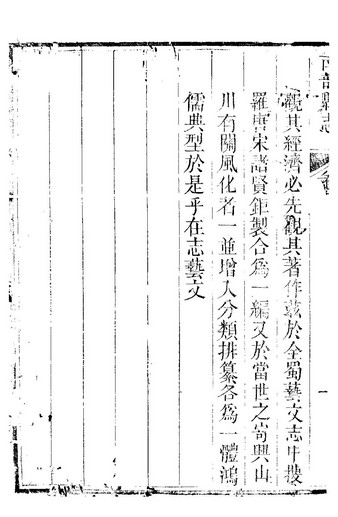 南部縣志
觀其經濟必先觀其著作茲於全蜀藝文志中搜
羅唐宋諸賢鉅製合爲一編又於當世之崗興山
川有關風化者一並增入分類排纂各爲一體鴻
儒典型於是乎在志藝文